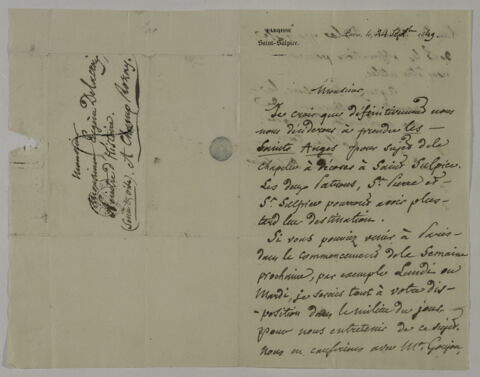 Monsieur
Monsieur Eugène Delacroix
Peintre d'histoire
à Champrosay
(Seine & Oise)
PAROISSE
Saint-Sulpice.
Paris, le 24 Septbre 1849
Monsieur,
Je crois que définitivement nous
nous déciderons à prendre les
Saints Anges pour sujet de la
chapelle à décorer à Saint Sulpice.
Les deux Patrons, St. Pierre et
St. Sulpice pourront avoir plus
tard leur destination.
Si vous pouviez venir à Paris
dans le commencement de la Semaine
prochaine, par exemple Lundi ou
Mardi, je serais tout à votre dis-
position dans le milieu du jour
pour nous entretenir de ce sujet.
Nous en conférerions avec Mr. Goujon,